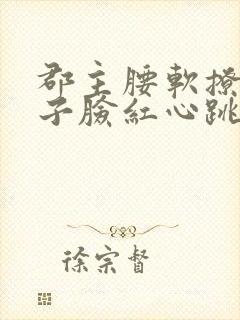 郡主腰軟撩
子臉紅心跳
徐宗督